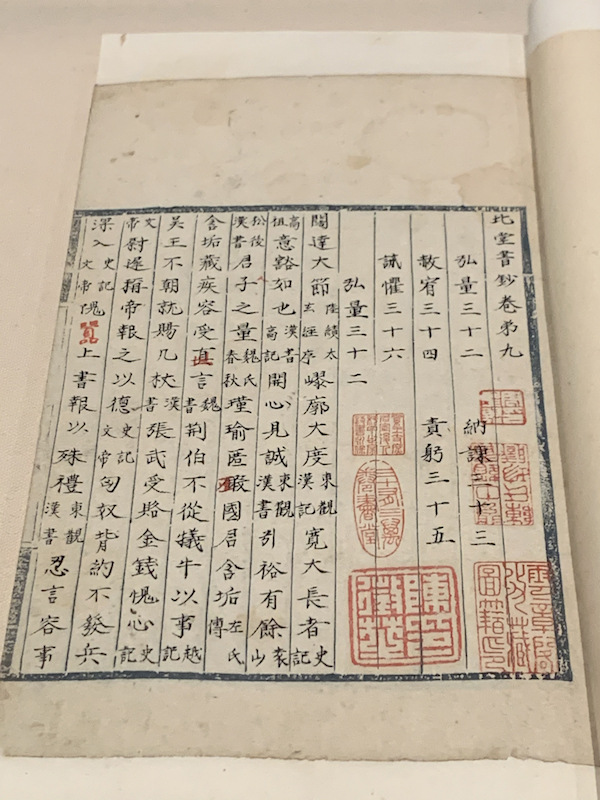 北堂書鈔卷苐九
弘量三十二 納諫三十三
赦宥三十四 責躬三十五
誡懼三十六
弘量三十二
闊達大節陸績太玄經序嶛廓大度東觀漢記寬大長者史記
高祖意豁如也漢書高記開心見誠東觀漢書引裕有餘袁山
松後漢書君子之量魏氏春秋瑾瑜匿瑕國君含垢左氏傳
含垢藏疾容受直言魏書荆伯不從犧牛以事越記
吳王不朝就賜几杖漢書張武受賂金錢愧心史記
文帝尉遲猶帝報之以德史記文帝匈奴背約不發兵
深入史記文帝愧上書報以殊禮東觀漢書忍言容事